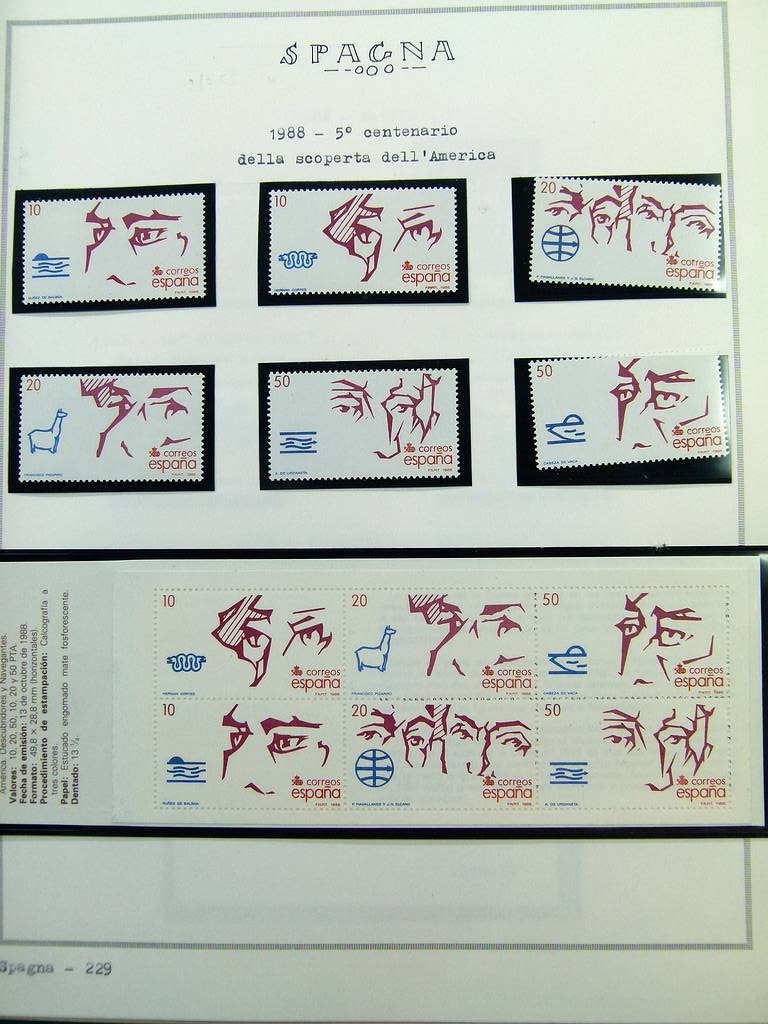 SPAGNA
--ooo--
1988 - 5º centenario
della scoperta dell'America
10
correos
españa
NUÑEZ DE BALBOA
F.N.M.T. 1988
10
correos
españa
HERNAN CORTES
F.N.M.T. 1988
20
correos
españa
F. MAGALLANES Y J. S. ELCANO
F.N.M.T. 1988
20
correos
españa
FRANCISCO PIZARRO
F.N.M.T. 1988
50
correos
españa
A. DE URDANETA
F.N.M.T. 1988
50
correos
españa
CABEZA DE VACA
F.N.M.T. 1988
América. Descubridores y Navegantes.
Valores: 10, 20, 50, 10, 20 y 50 PTA.
Fecha de emisión: 13 de octubre de 1988.
Formato: 49,8 × 28,8 mm (horizontales).
Procedimiento de estampación: Calcografía a
tres colores.
Papel: Estucado engomado mate fosforescente.
Dentado: 13 ¼.
10
correos
españa
HERNAN CORTES
F.N.M.T. 1988
20
correos
españa
FRANCISCO PIZARRO
F.N.M.T. 1988
50
correos
españa
CABEZA DE VACA
F.N.M.T. 1988
10
correos
españa
NUÑEZ DE BALBOA
F.N.M.T. 1988
20
correos
españa
F. MAGALLANES Y J. S. ELCANO
F.N.M.T. 1988
50
correos
españa
A. DE URDANETA
F.N.M.T. 1988
Spagna - 229